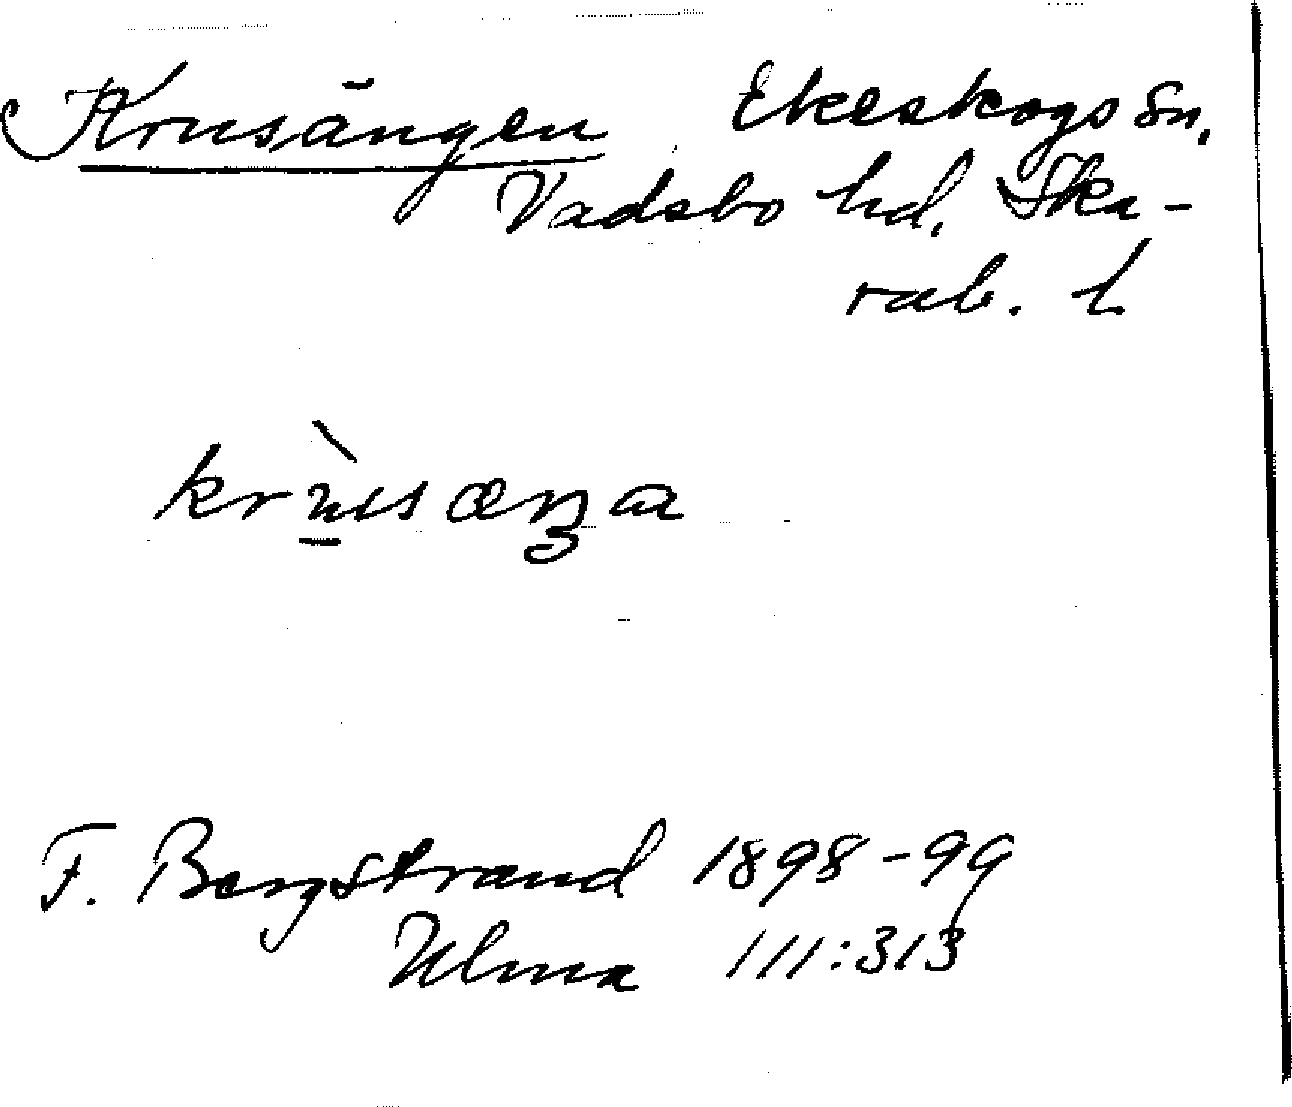 Krusängen Ekeskogs sn,
Vadsbo hd. Ska-
rab. l
krùsæŋa
F. Bergstrand 1898-99
Ulma 111:313